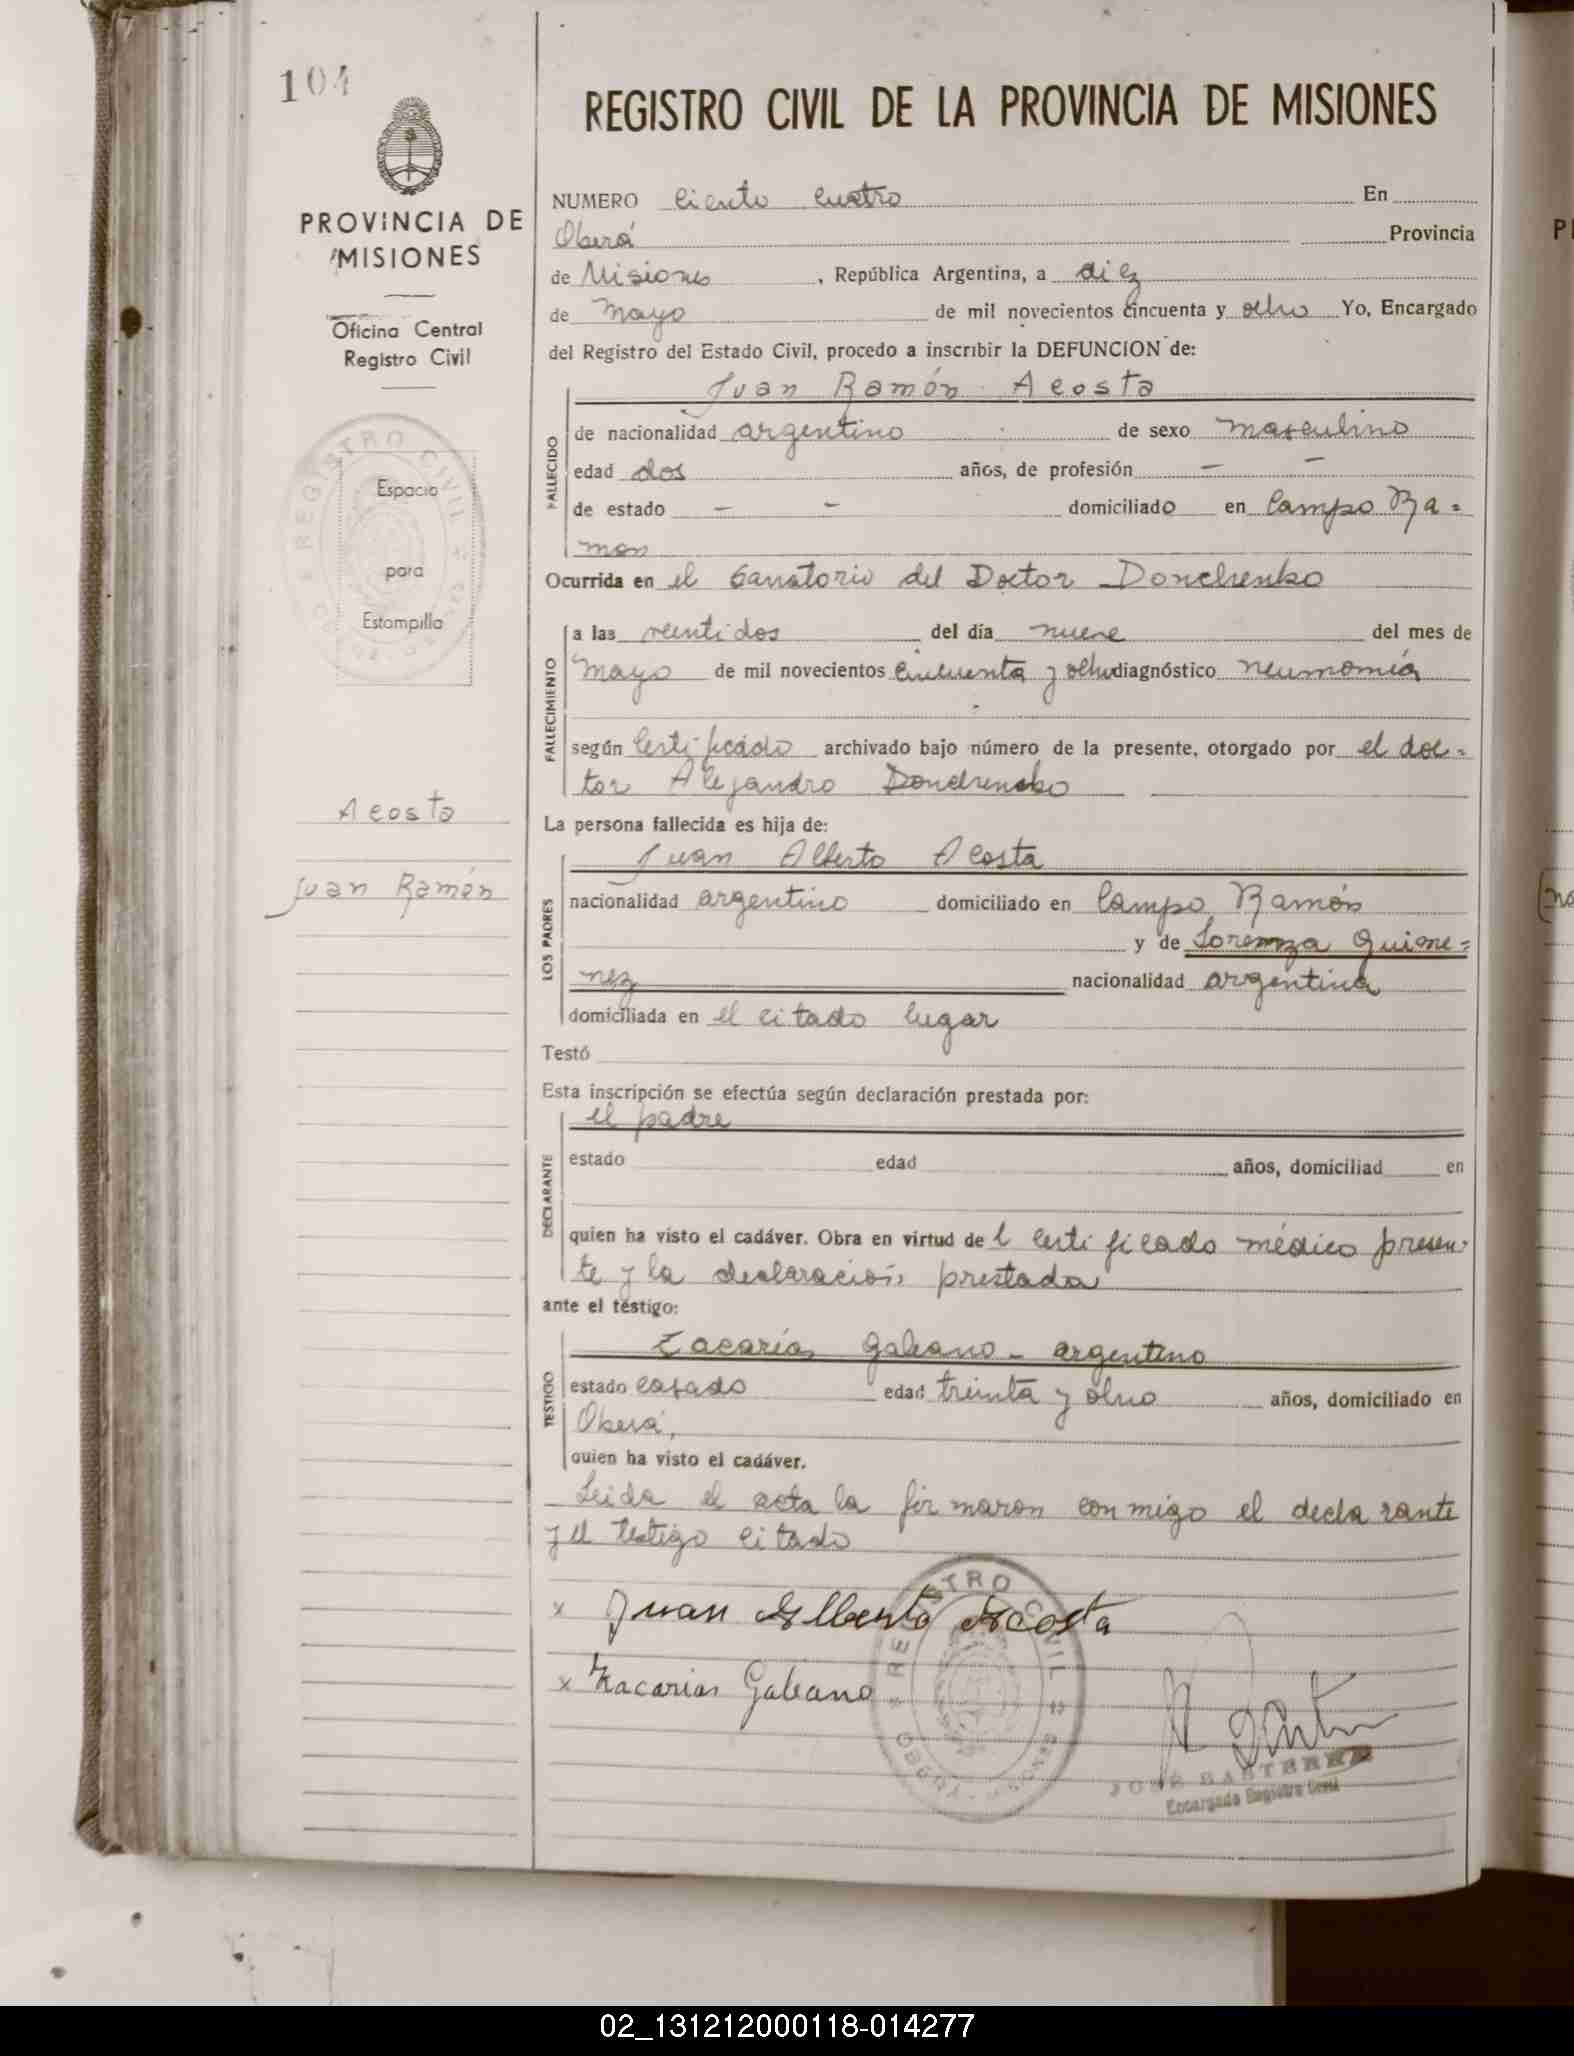 104
PROVINCIA DE
MISIONES
Oficina Central
Registro Civil
REGISTRO CIVIL
Espacio
para
Estampilla
Acosta
Juan Ramón
REGISTRO CIVIL DE LA PROVINCIA DE MISIONES
NUMERO Ciento Cuatro En
Oberá Provincia
de Misiones , República Argentina, a diez
de Mayo de mil novecientos cincuenta y ocho Yo, Encargado
del Registro del Estado Civil, procedo a inscribir la DEFUNCION de:
Juan Ramón Acosta
FALLECIDO
de nacionalidad argentino de sexo masculino
edad dos años, de profesión — —
de estado — — domiciliado en Campo Ra=
mon
Ocurrida en el Sanatorio del Doctor Donchenko
FALLECIMIENTO
a las veintidos del día nueve del mes de
Mayo de mil novecientos cincuenta y ocho diagnóstico neumomía
según Certificado archivado bajo número de la presente, otorgado por el doc=
tor Alejandro Donchenko
La persona fallecida es hija de:
LOS PADRES
Juan Alberto Acosta
nacionalidad argentino domiciliado en Campo Ramón
y de Lorenza Guime=
nez nacionalidad argentina
domiciliada en el citado lugar
Testó
Esta inscripción se efectúa según declaración prestada por:
DECLARANTE
el padre
estado edad años, domiciliad en
quien ha visto el cadáver. Obra en virtud de l certificado médico presen-
te y la declaración prestada
ante el testigo:
TESTIGO
Zacarías Galeano - argentino
estado casado edad treinta y ocho años, domiciliado en
Oberá,
quien ha visto el cadáver.
Leida el acta la firmaron conmigo el declarante
y el testigo citado
x Juan Alberto Acosta
x Zacarias Galeano
REGISTRO CIVIL
OBERA
Encargado Registro Civil
02_131212000118-014277